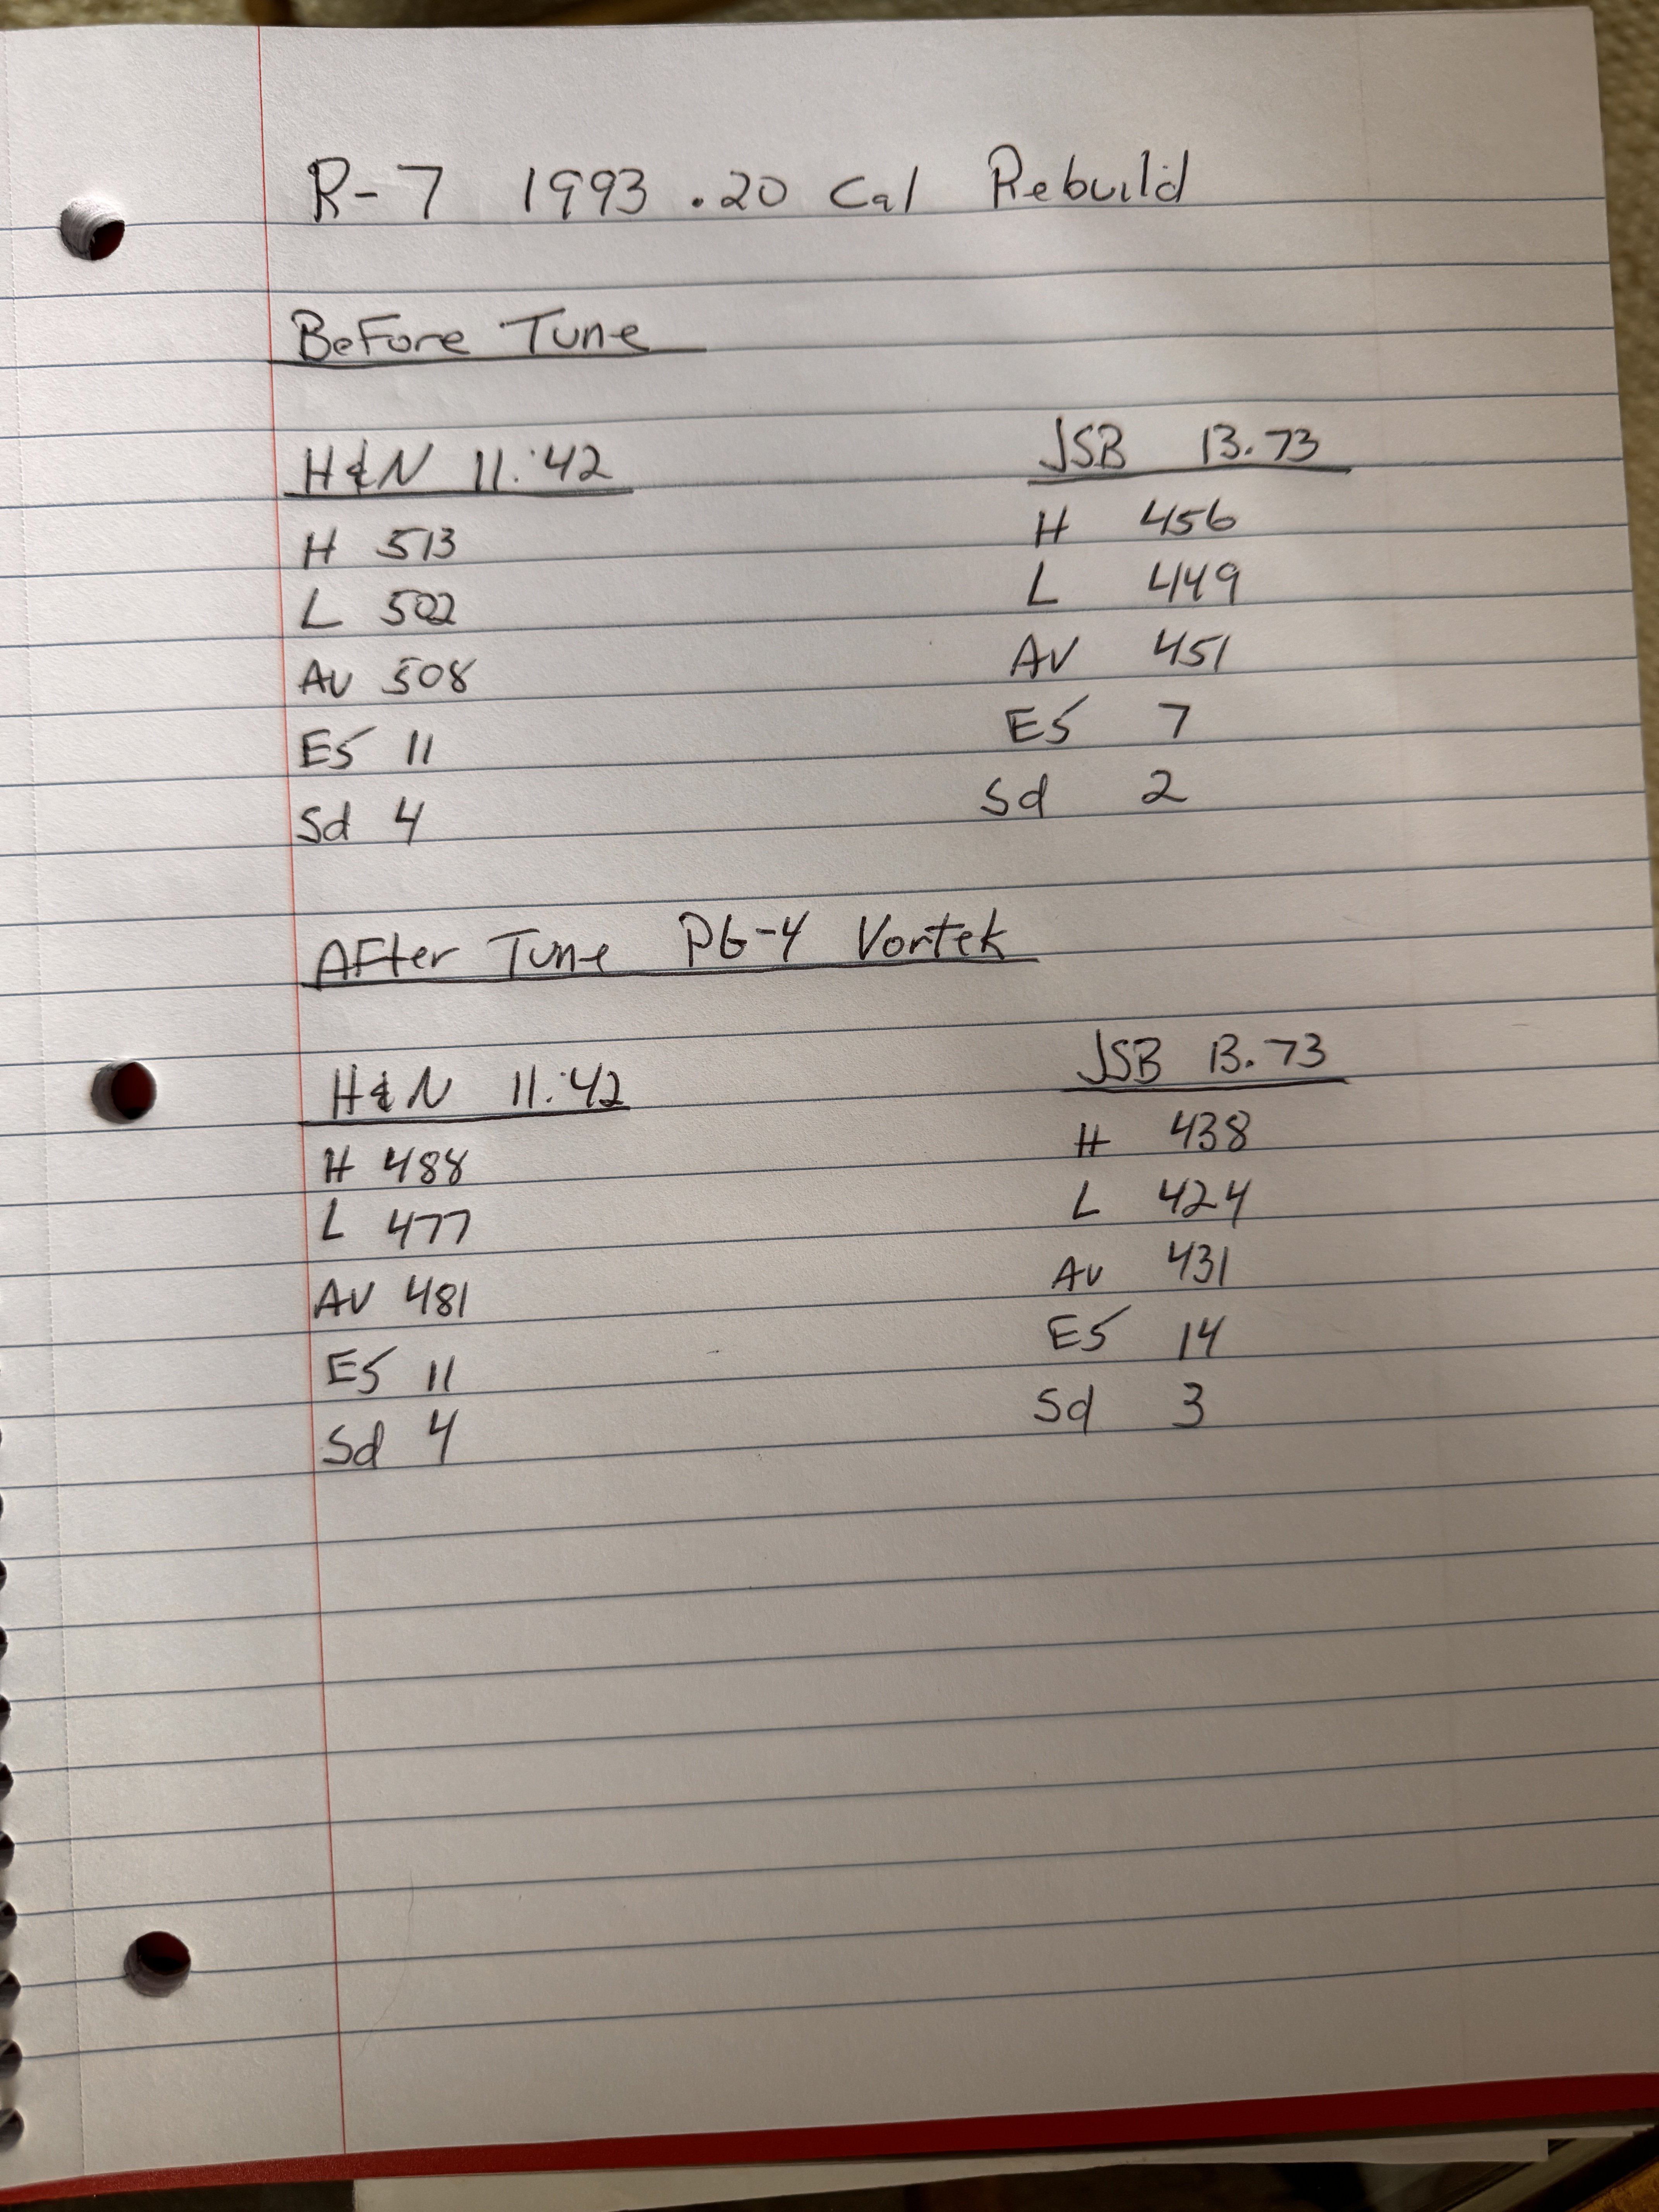 R-7 1993 .20 Cal Rebuild
Before Tune
H&N 11.42 JSB 13.73
H 513 H 456
L 502 L 449
Av 508 Av 451
ES 11 ES 7
Sd 4 Sd 2
AFter Tune PG-4 Vortek
H&N 11.42 JSB 13.73
H 488 H 438
L 477 L 424
Av 481 Av 431
ES 11 ES 14
Sd 4 Sd 3